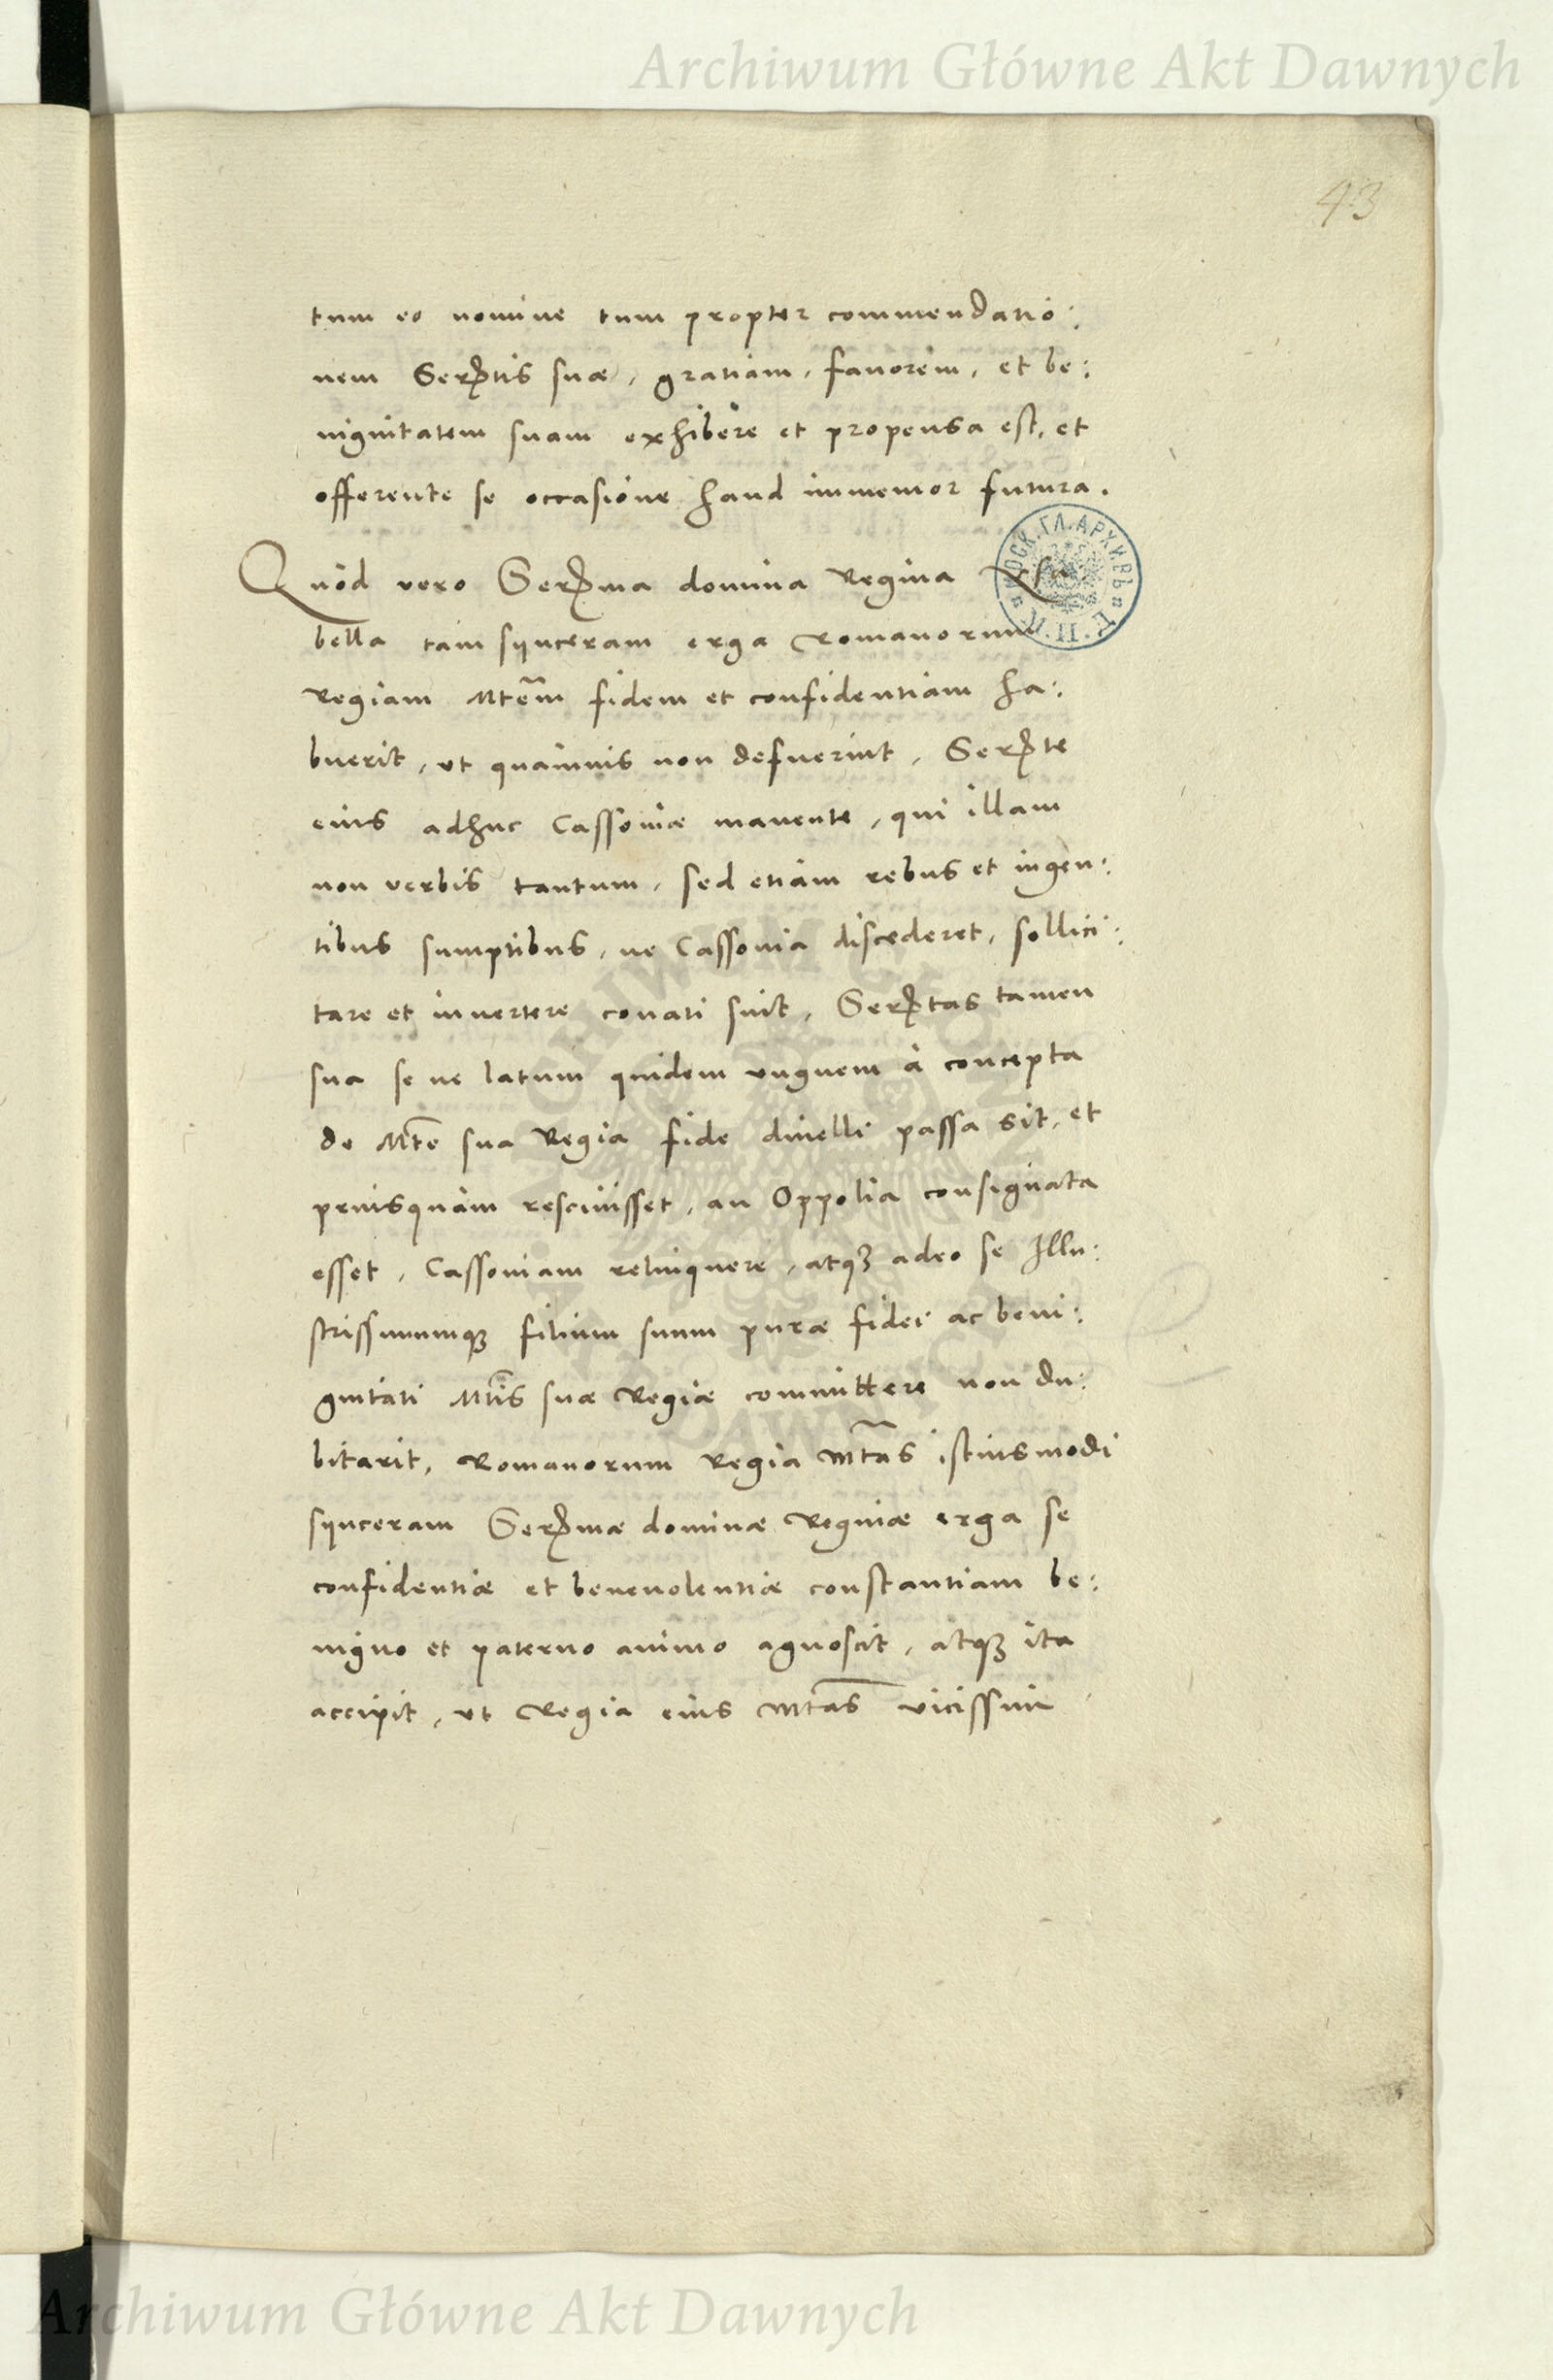 Archiwum Główne Akt Dawnych
43
tum eo nomine tum propter commendatio:
nem Serẽtis suæ, gratiam, favorem, et be:
nignitatem suam exhibere et propensa est, et
offerente se occasione haud immemor futura.
Quod vero Serẽma domina Regina Isa
bella tam synceram erga Romanorum
Regiam Mtẽm fidem et confidentiam ha:
buerit, ut quamvis non defuerint, Serẽte
eius adhuc Cassoviæ manente, qui illam
non verbis tantum, sed etiam rebus et ingen:
tibus sumptibus, ne Cassovia discederet, sollici:
tare et invertere conati sint, Serẽtas tamen
sua se ne latum quidem unguem à concepta
de Mtẽ sua Regia fide divelli passa sit, et
priusquam rescivisset, an Oppolia consignata
esset, Cassoviam relinquere, atqꝫ adeo se Illu:
strissimumqꝫ filium suum puræ fidei ac beni:
gnitati Mtĩs suæ Regiæ committere non du:
bitarit, Romanorum Regia Mtãs istiusmodi
synceram Serẽmæ dominæ Reginæ erga se
confidentiæ et benevolentiæ constantiam be:
nigno et paterno animo agnoscit, atqꝫ ita
accipit, ut Regia eius Mtãs vicissim
МОСК. ГЛ. АРХИВЪ
ARCHIWUM GŁÓWNE AKT DAWNYCH
Archiwum Główne Akt Dawnych